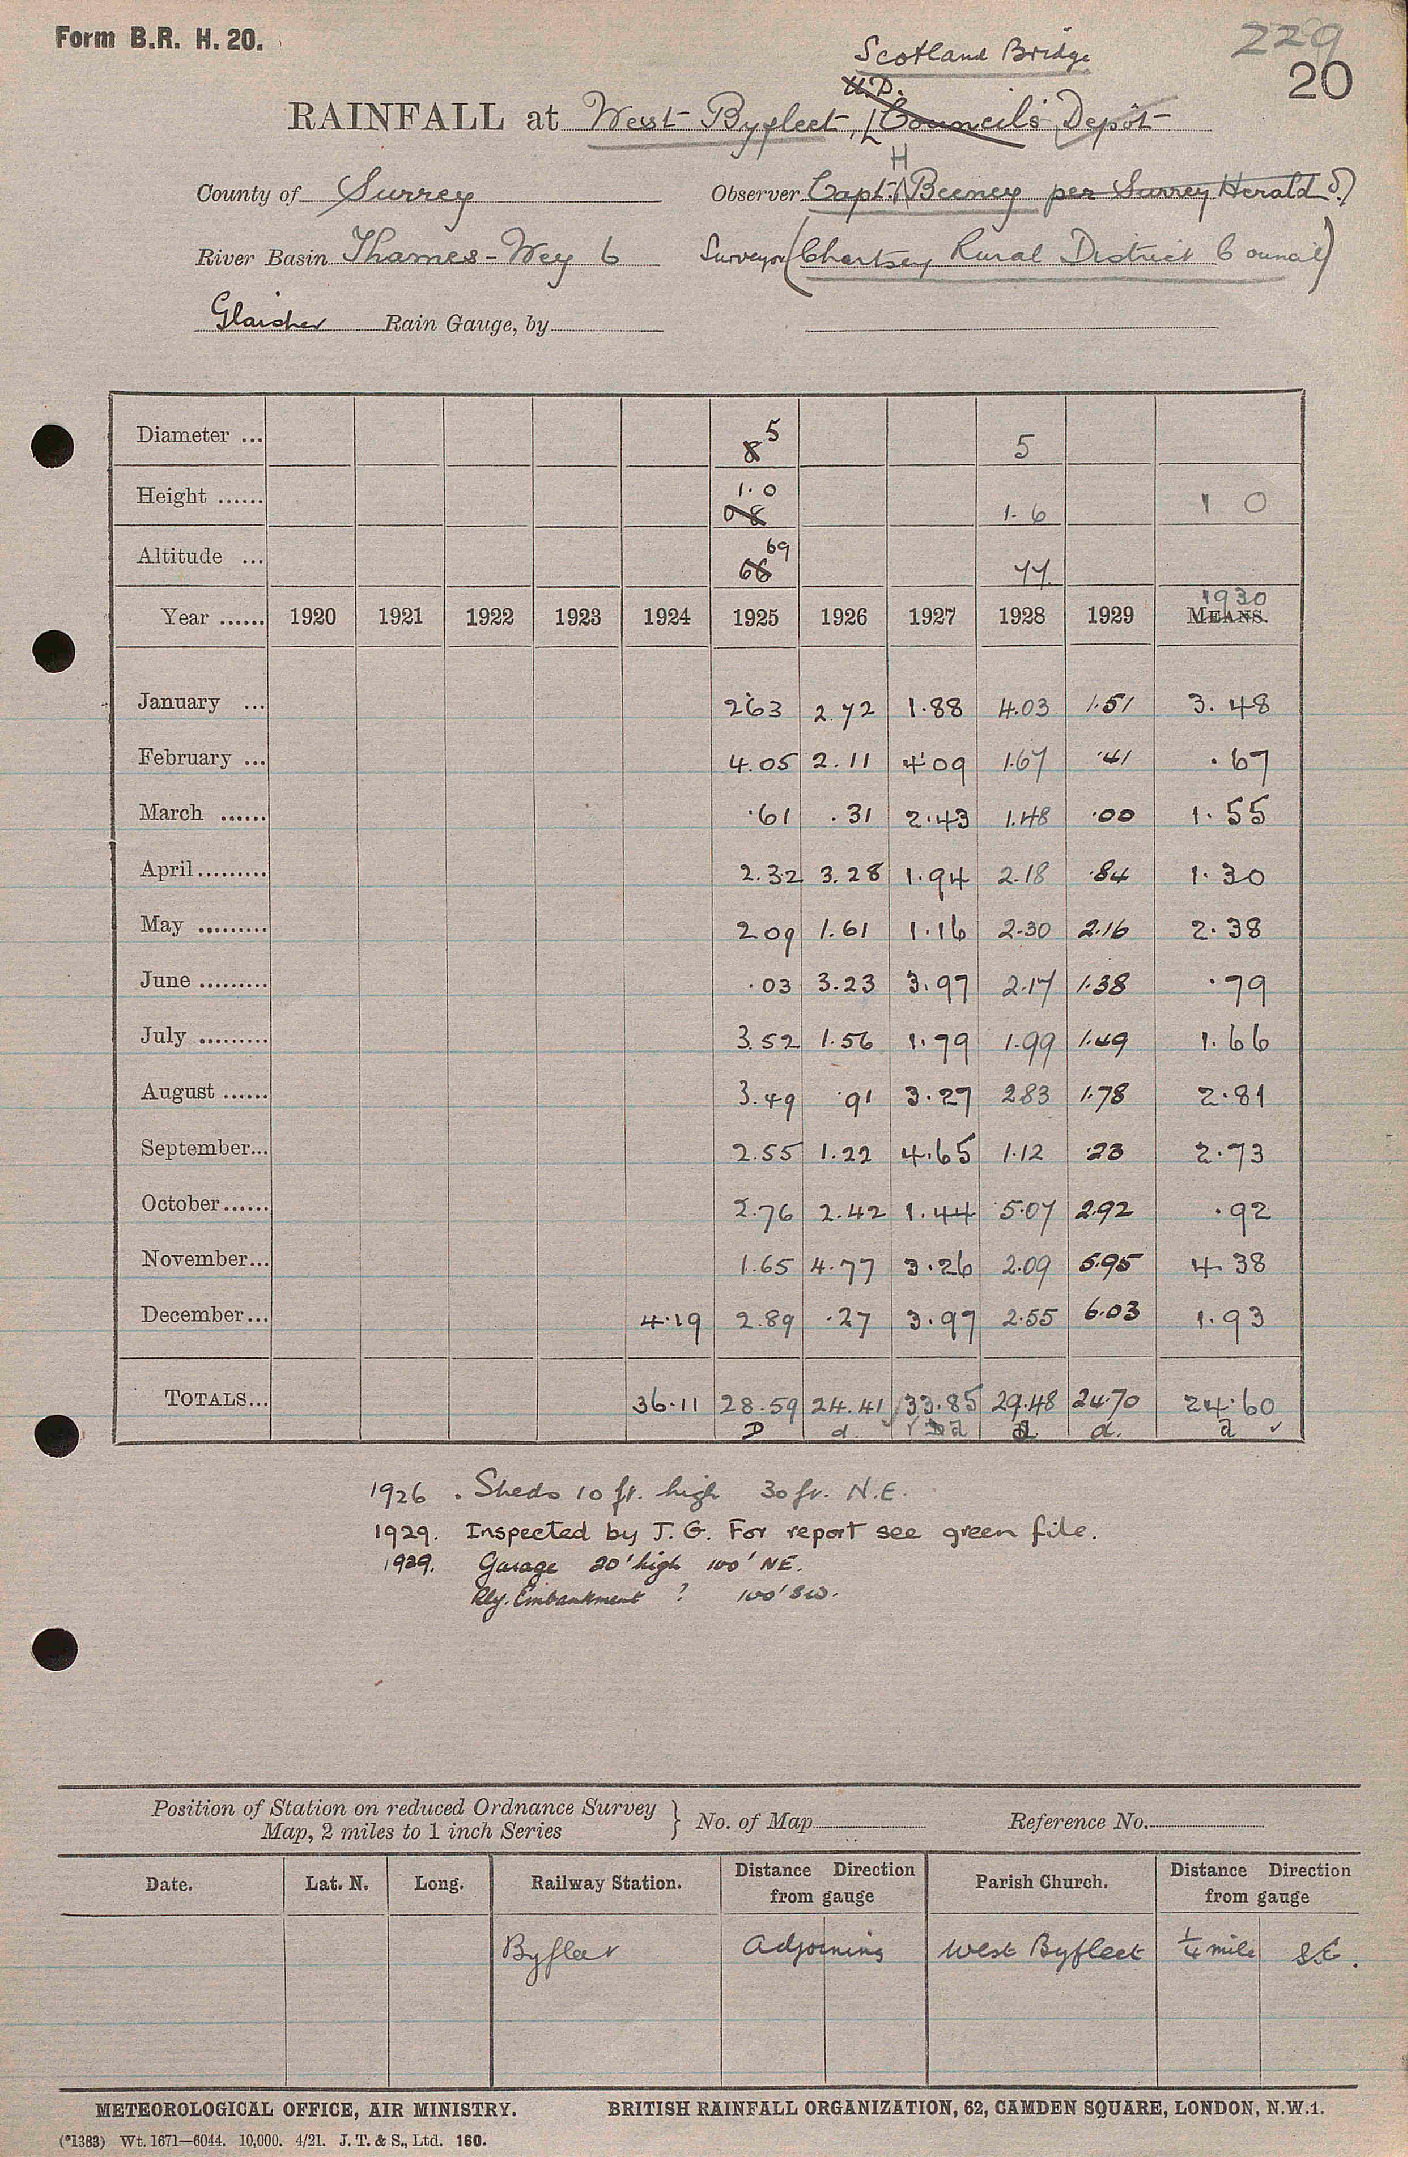 Form B.R. H. 20.
229
20
Scotland Bridge
U.D.
RAINFALL at West Byfleet, Council's Depôt
H
County of Surrey Observer Capt. Beeney per Surrey Herald
River Basin Thames - Wey 6 Surveyor (Chertsey Rural District Council)
Glaisher Rain Gauge, by
Diameter ... 8 5 5
Height ...... 1.0 0.8 1.6 1 0
Altitude ... 69 66 77
1930
Year ...... 1920 1921 1922 1923 1924 1925 1926 1927 1928 1929 MEANS.
January ... 2.63 2.72 1.88 4.03 1.51 3.48
February ... 4.05 2.11 4.09 1.67 .41 .67
March ...... .61 .31 2.43 1.48 .00 1.55
April ......... 2.32 3.28 1.94 2.18 .84 1.30
May ......... 2.09 1.61 1.16 2.30 2.16 2.38
June ......... .03 3.23 3.97 2.17 1.38 .79
July ......... 3.52 1.56 1.79 1.99 1.49 1.66
August ...... 3.49 .91 3.27 2.83 1.78 2.81
September... 2.55 1.22 4.65 1.12 .23 2.73
October ...... 2.76 2.42 1.44 5.07 2.92 .92
November... 1.65 4.77 3.26 2.09 5.95 4.38
December... 4.19 2.89 .27 3.97 2.55 6.03 1.93
TOTALS... 36.11 28.59 24.41 33.85 29.48 24.70 24.60
D d. d d. d
1926. Sheds 10 ft. high 30 ft. N.E.
1929. Inspected by J. G. For report see green file.
1929. Garage 20' high 100' NE.
Rly. Embankment ? 100' SW.
Position of Station on reduced Ordnance Survey
Map, 2 miles to 1 inch Series } No. of Map Reference No.
Date. Lat. N. Long. Railway Station. Distance Direction from gauge Parish Church. Distance Direction from gauge
Byfleet Adjoining West Byfleet ¼ mile S.E.
METEOROLOGICAL OFFICE, AIR MINISTRY. BRITISH RAINFALL ORGANIZATION, 62, CAMDEN SQUARE, LONDON, N.W.1.
(*1383) Wt. 1671—6044. 10,000. 4/21. J. T. & S., Ltd. 160.